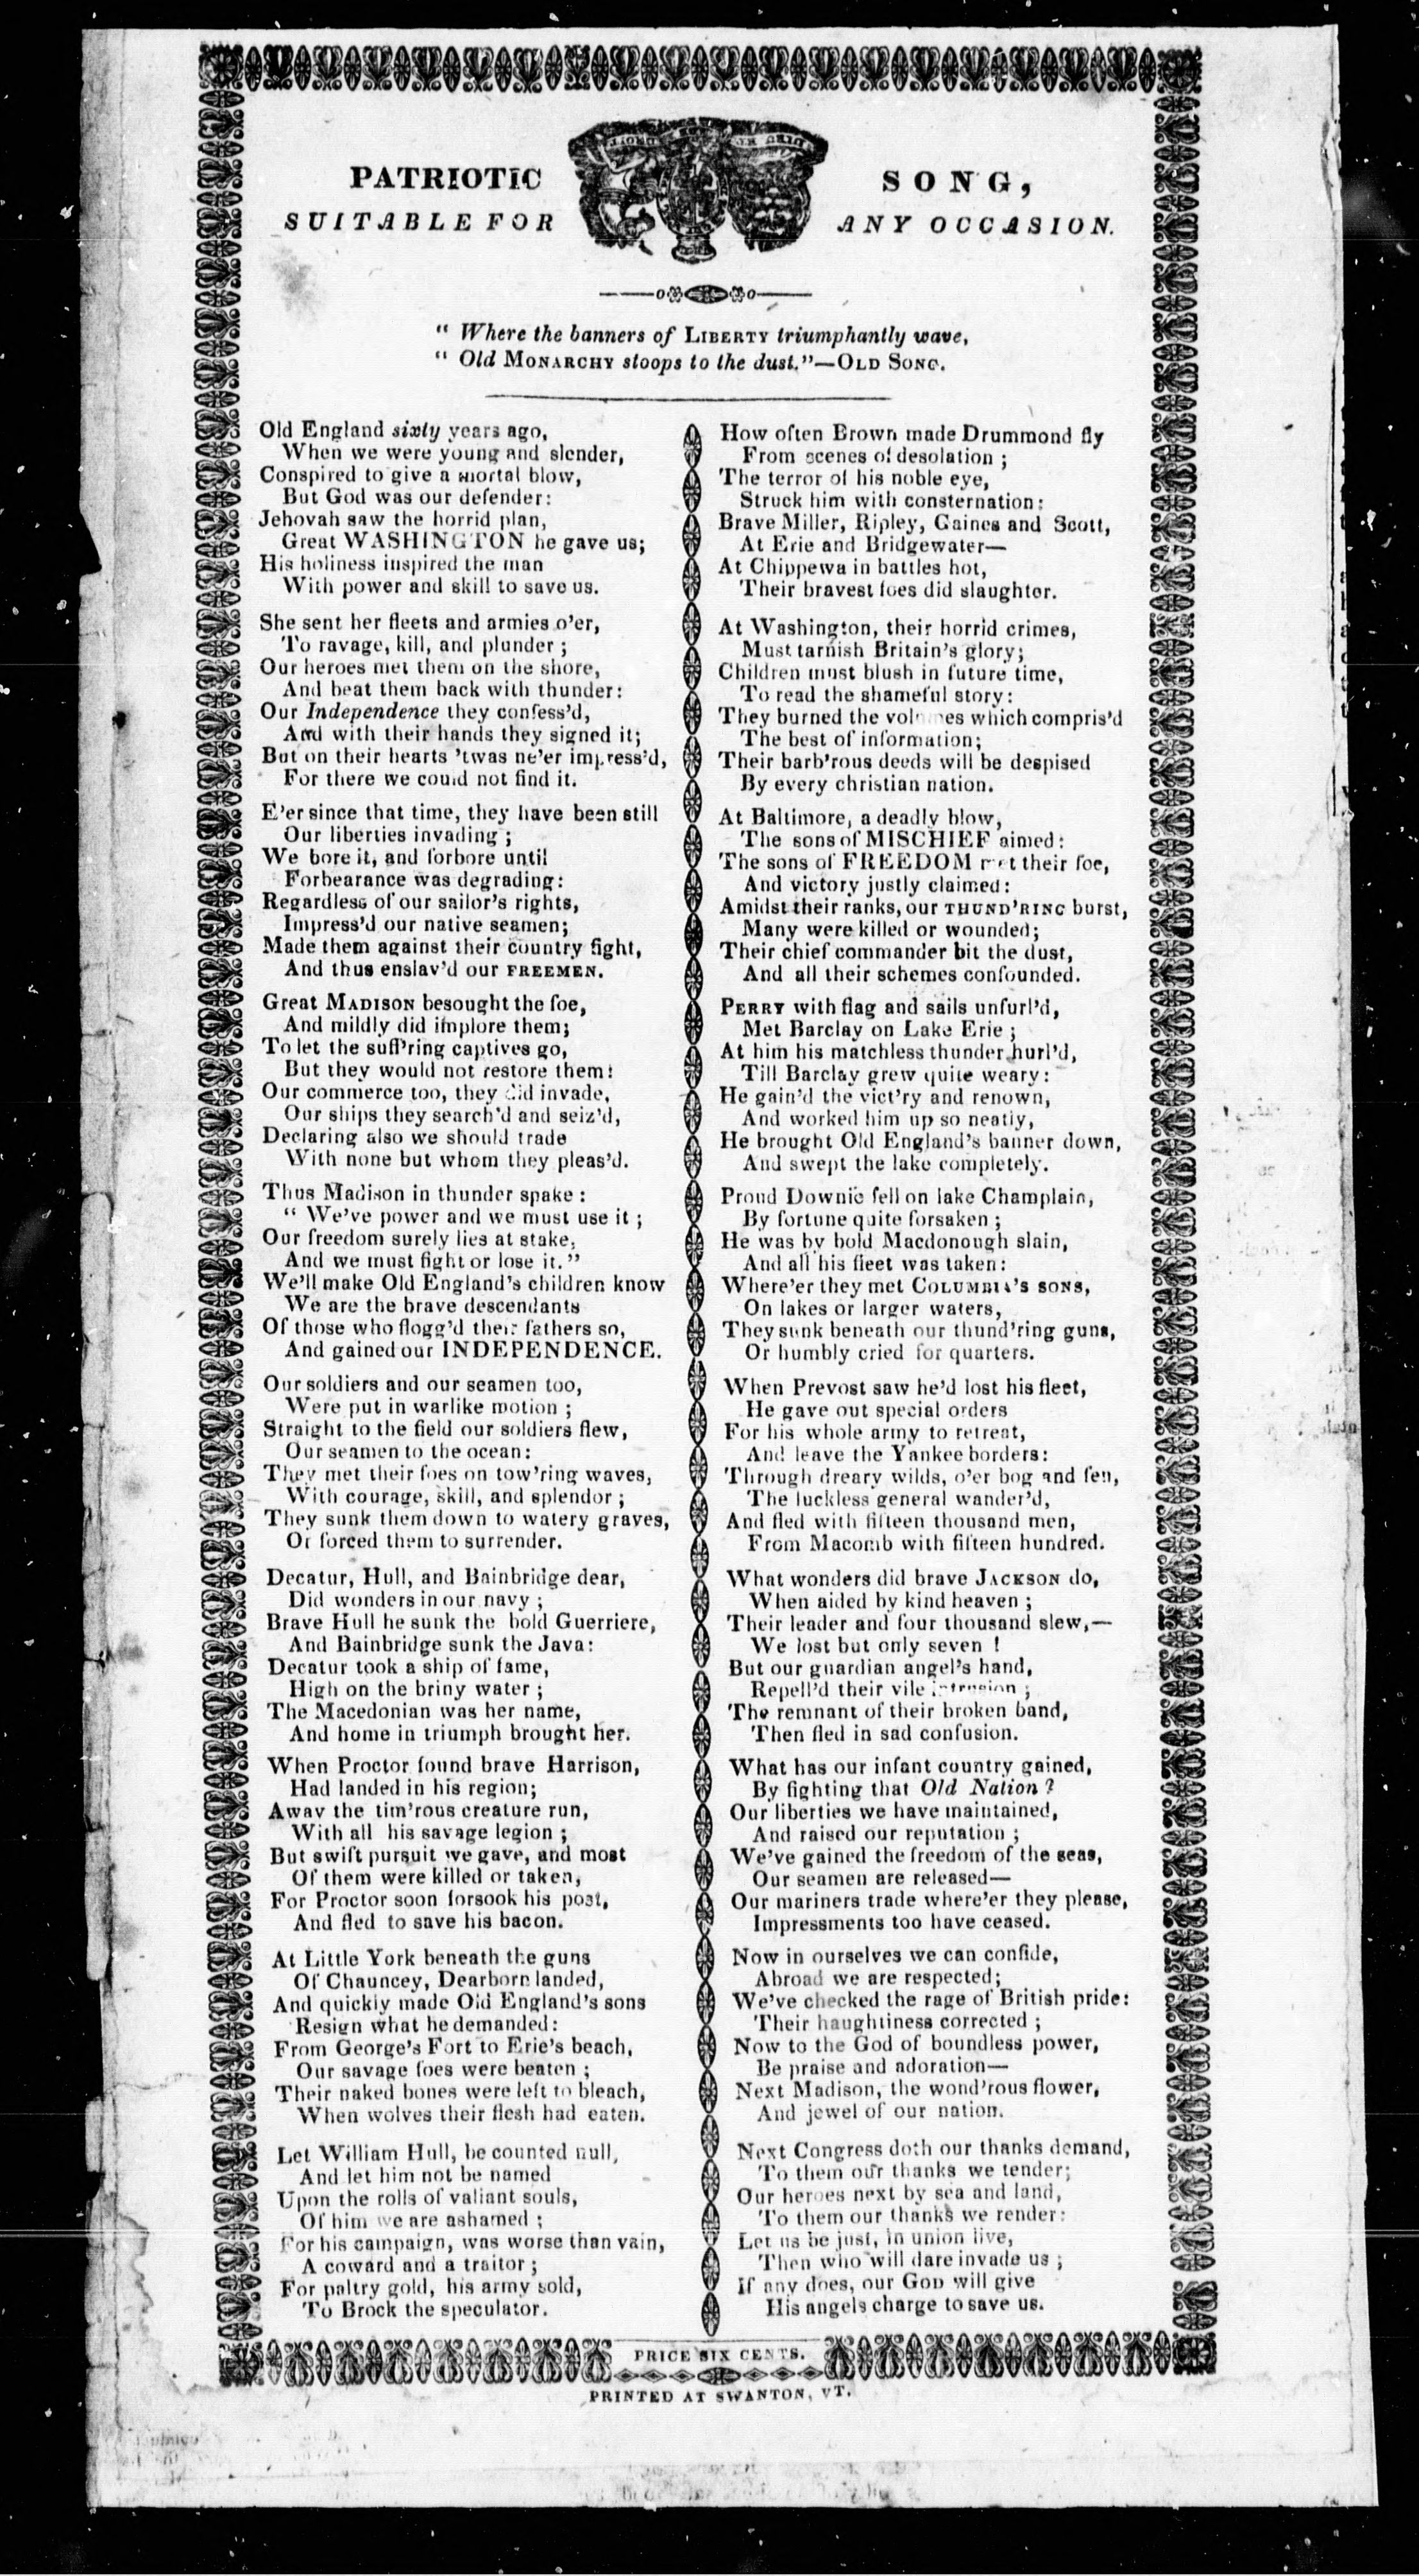 PATRIOTIC SONG,
SUITABLE FOR ANY OCCASION.
" Where the banners of LIBERTY triumphantly wave,
" Old MONARCHY stoops to the dust."—OLD SONG.
Old England sixty years ago,
When we were young and slender,
Conspired to give a mortal blow,
But God was our defender:
Jehovah saw the horrid plan,
Great WASHINGTON he gave us;
His holiness inspired the man
With power and skill to save us.
She sent her fleets and armies o'er,
To ravage, kill, and plunder ;
Our heroes met them on the shore,
And beat them back with thunder:
Our Independence they confess'd,
And with their hands they signed it;
But on their hearts 'twas ne'er impress'd,
For there we could not find it.
E'er since that time, they have been still
Our liberties invading ;
We bore it, and forbore until
Forbearance was degrading:
Regardless of our sailor's rights,
Impress'd our native seamen;
Made them against their country fight,
And thus enslav'd our FREEMEN.
Great MADISON besought the foe,
And mildly did implore them;
To let the suff'ring captives go,
But they would not restore them:
Our commerce too, they did invade,
Our ships they search'd and seiz'd,
Declaring also we should trade
With none but whom they pleas'd.
Thus Madison in thunder spake :
" We've power and we must use it ;
Our freedom surely lies at stake,
And we must fight or lose it."
We'll make Old England's children know
We are the brave descendants
Of those who flogg'd their fathers so,
And gained our INDEPENDENCE.
Our soldiers and our seamen too,
Were put in warlike motion ;
Straight to the field our soldiers flew,
Our seamen to the ocean:
They met their foes on tow'ring waves,
With courage, skill, and splendor ;
They sunk them down to watery graves,
Or forced them to surrender.
Decatur, Hull, and Bainbridge dear,
Did wonders in our navy ;
Brave Hull he sunk the bold Guerriere,
And Bainbridge sunk the Java:
Decatur took a ship of fame,
High on the briny water ;
The Macedonian was her name,
And home in triumph brought her.
When Proctor found brave Harrison,
Had landed in his region;
Away the tim'rous creature run,
With all his savage legion ;
But swift pursuit we gave, and most
Of them were killed or taken,
For Proctor soon forsook his post,
And fled to save his bacon.
At Little York beneath the guns
Of Chauncey, Dearborn landed,
And quickly made Old England's sons
Resign what he demanded:
From George's Fort to Erie's beach,
Our savage foes were beaten ;
Their naked bones were left to bleach,
When wolves their flesh had eaten.
Let William Hull, be counted null,
And let him not be named
Upon the rolls of valiant souls,
Of him we are ashamed ;
For his campaign, was worse than vain,
A coward and a traitor ;
For paltry gold, his army sold,
To Brock the speculator.
How often Brown made Drummond fly
From scenes of desolation ;
The terror of his noble eye,
Struck him with consternation:
Brave Miller, Ripley, Gaines and Scott,
At Erie and Bridgewater—
At Chippewa in battles hot,
Their bravest foes did slaughter.
At Washington, their horrid crimes,
Must tarnish Britain's glory;
Children must blush in future time,
To read the shameful story:
They burned the volumes which compris'd
The best of information;
Their barb'rous deeds will be despised
By every christian nation.
At Baltimore, a deadly blow,
The sons of MISCHIEF aimed:
The sons of FREEDOM met their foe,
And victory justly claimed:
Amidst their ranks, our THUND'RING burst,
Many were killed or wounded;
Their chief commander bit the dust,
And all their schemes confounded.
PERRY with flag and sails unfurl'd,
Met Barclay on Lake Erie ;
At him his matchless thunder hurl'd,
Till Barclay grew quite weary:
He gain'd the vict'ry and renown,
And worked him up so neatly,
He brought Old England's banner down,
And swept the lake completely.
Proud Downie fell on lake Champlain,
By fortune quite forsaken ;
He was by bold Macdonough slain,
And all his fleet was taken:
Where'er they met COLUMBIA'S SONS,
On lakes or larger waters,
They sunk beneath our thund'ring guns,
Or humbly cried for quarters.
When Prevost saw he'd lost his fleet,
He gave out special orders
For his whole army to retreat,
And leave the Yankee borders:
Through dreary wilds, o'er bog and fen,
The luckless general wander'd,
And fled with fifteen thousand men,
From Macomb with fifteen hundred.
What wonders did brave JACKSON do,
When aided by kind heaven ;
Their leader and four thousand slew,—
We lost but only seven !
But our guardian angel's hand,
Repell'd their vile intrusion ;
The remnant of their broken band,
Then fled in sad confusion.
What has our infant country gained,
By fighting that Old Nation ?
Our liberties we have maintained,
And raised our reputation ;
We've gained the freedom of the seas,
Our seamen are released—
Our mariners trade where'er they please,
Impressments too have ceased.
Now in ourselves we can confide,
Abroad we are respected;
We've checked the rage of British pride:
Their haughtiness corrected ;
Now to the God of boundless power,
Be praise and adoration—
Next Madison, the wond'rous flower,
And jewel of our nation.
Next Congress doth our thanks demand,
To them our thanks we tender;
Our heroes next by sea and land,
To them our thanks we render:
Let us be just, in union live,
Then who will dare invade us ;
If any does, our GOD will give
His angels charge to save us.
PRICE SIX CENTS.
PRINTED AT SWANTON, VT.